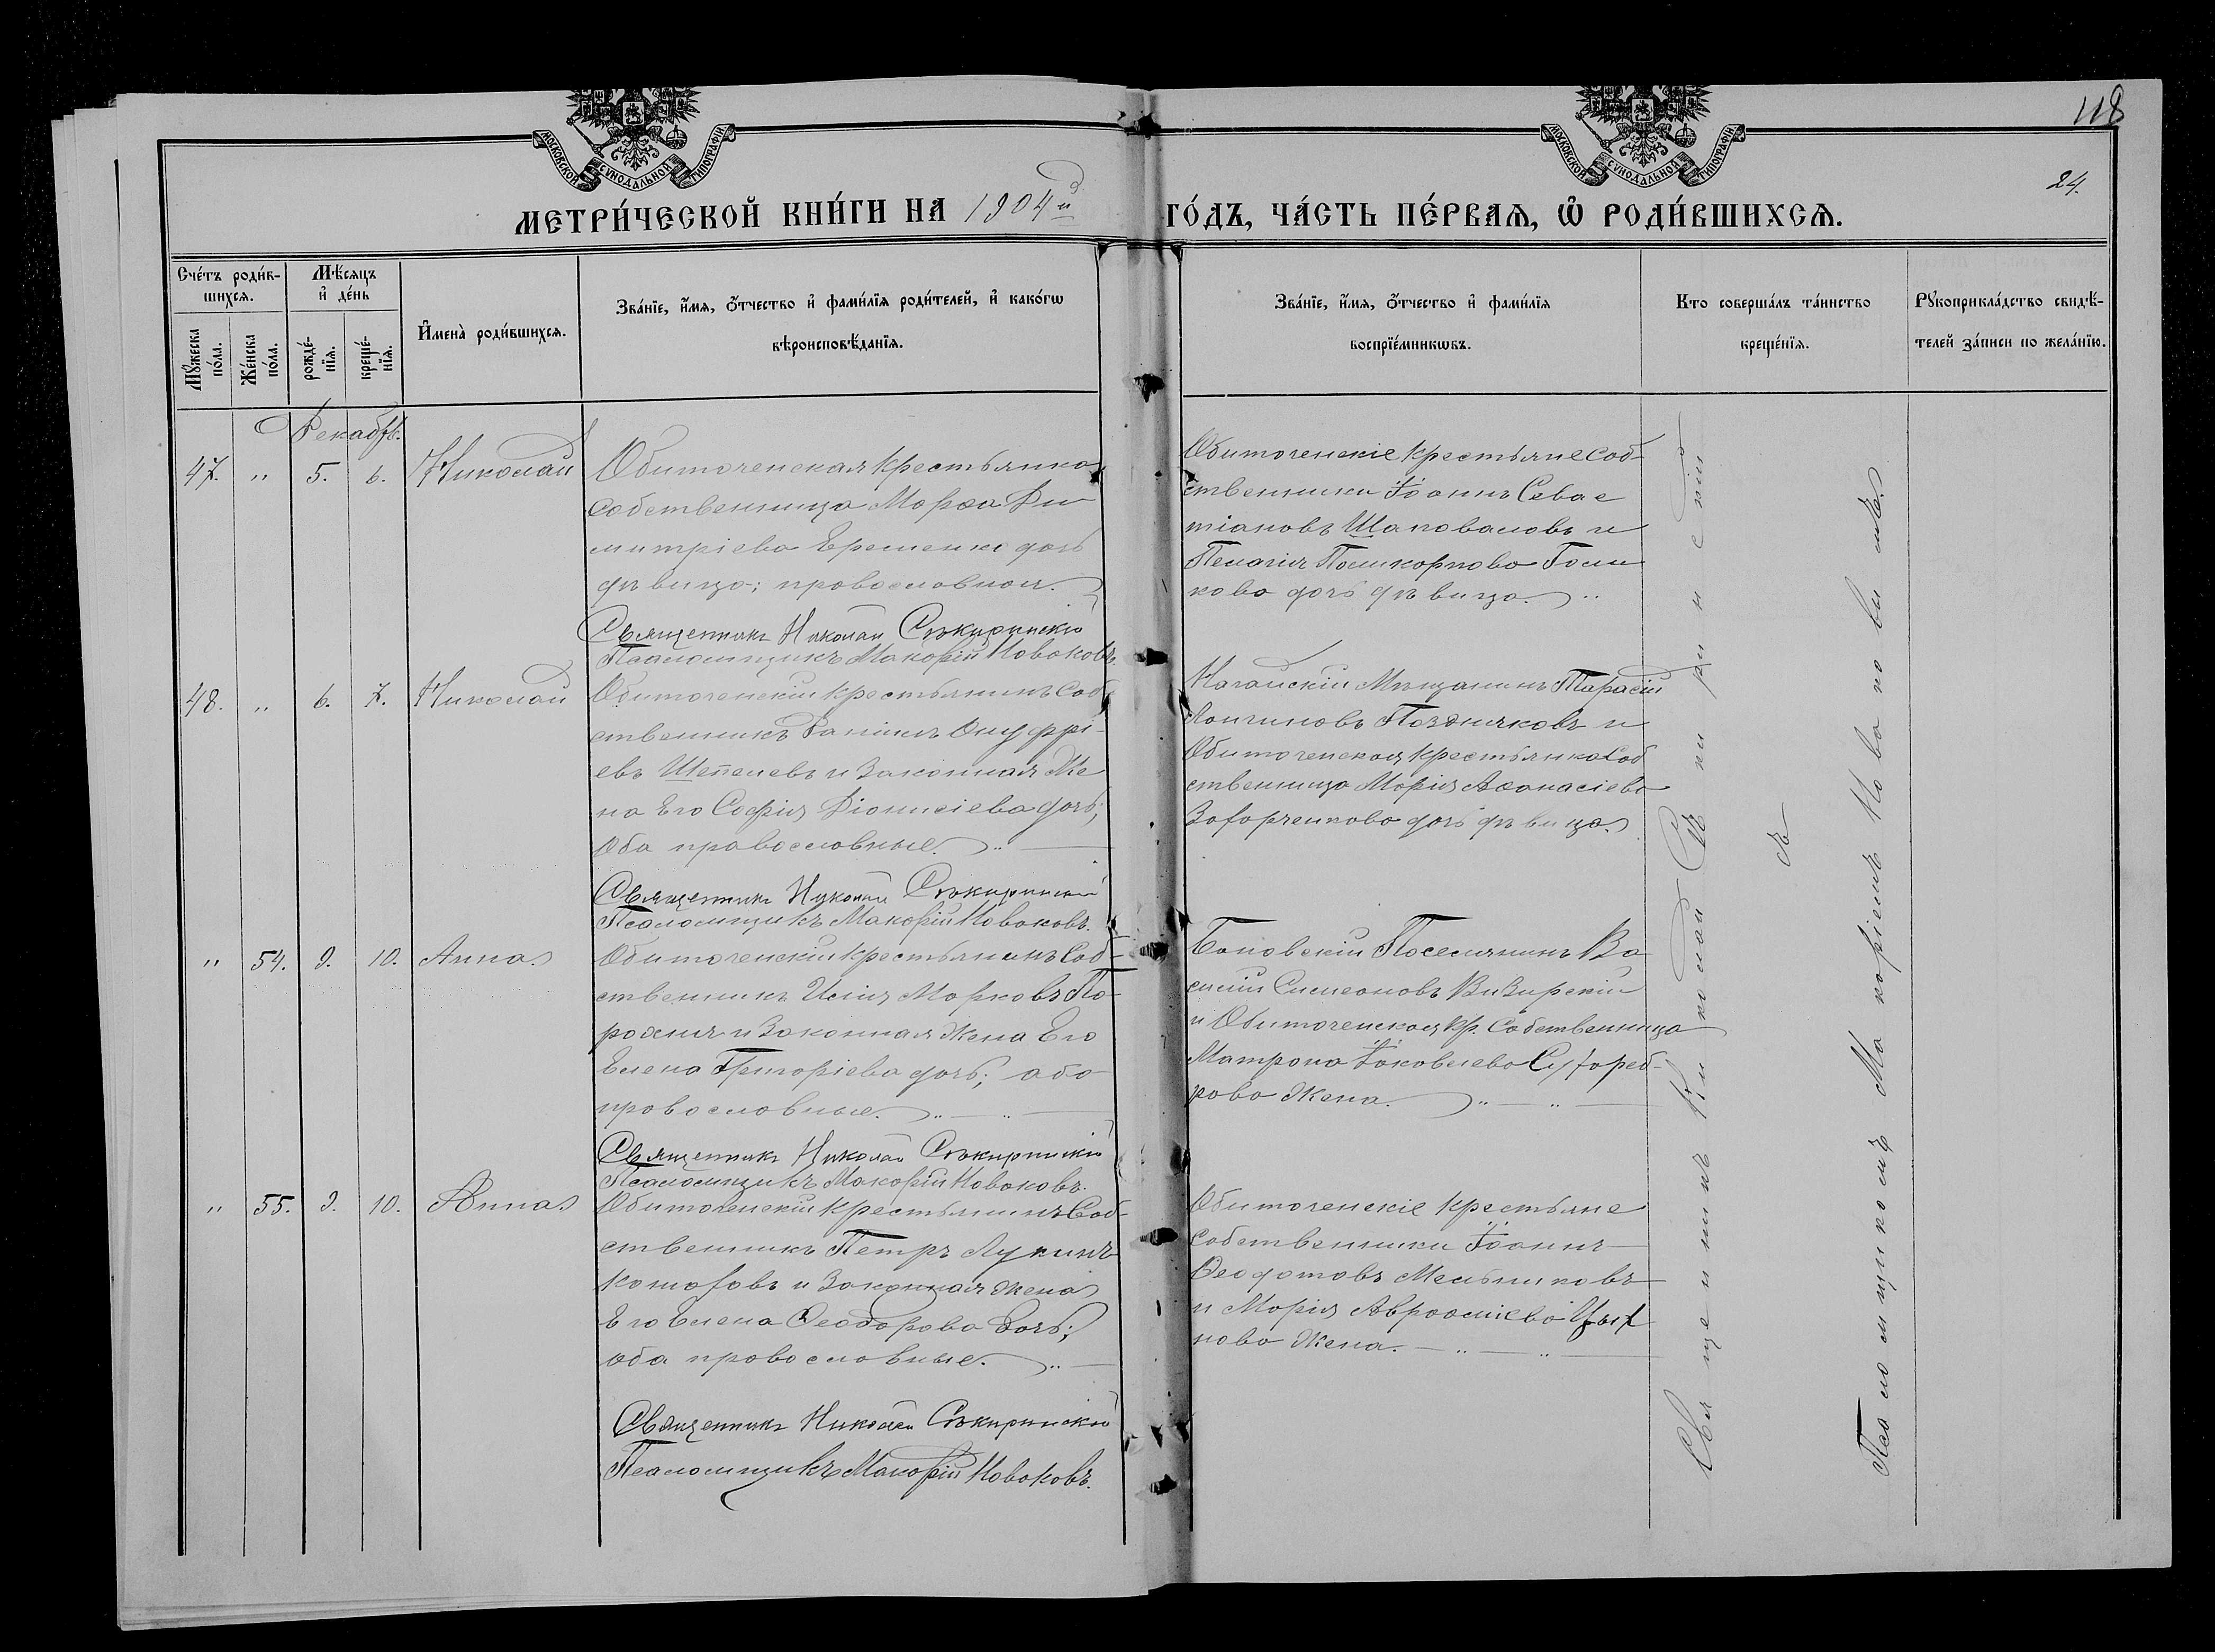 118
24.
МОСКОВСКОЙ СѴНОДАЛЬНОЙ ТИПОГРАФІИ
МОСКОВСКОЙ СѴНОДАЛЬНОЙ ТИПОГРАФІИ
МЕТРИ́ЧЕСКОЙ КНИ́ГИ НА 1904й ГО́ДЪ, ЧА́СТЬ ПЕ́РВАѦ, Ѽ РОДИ́ВШИХСѦ.
Сче́тъ роди́в-
шихсѧ.
Мѣ́сѧцъ
и҆ де́нь
Мꙋ́жеска
по́ла.
Же́нска
по́ла.
рожде́-
нїѧ.
креще́-
нїѧ.
И҆мена̀ роди́вшихсѧ.
Зва́нїе, и҆́мѧ, ѻ҆́тчество и҆ фами́лїѧ роди́телей, и҆ како́гѡ
вѣроисповѣ́данїѧ.
Зва́нїе, и҆́мѧ, ѻ҆́тчество и҆ фами́лїѧ
воспрїе́мникѡвъ.
Кто соверша́лъ та́инство
креще́нїѧ.
Рꙋкоприкла́дство свидѣ́-
телей за́писи по жела́нїю.
Декабрь.
47. " 5. 6. Николай
Обиточенская крестьянка
собственница Марѳа Ди
митріева Еременко дочь
дѣвица; православная.
Священникъ Николай Сѣкиринскій
Псаломщикъ Макарій Новаковъ.
Обиточенскіе крестьяне соб-
ственники Іоаннъ Севас
тіановъ Шаповаловъ и
Пелагія Поликарпова Голи
кова дочь дѣвица."
48. " 6. 7. Николай
Обиточенскій крестьянинъ Соб
ственникъ Даніилъ Онуфрі-
евъ Шепелевъ и Законная Же
на Его Софія Діонисіева дочь;
Оба православные."
Священникъ Николай Сѣкиринскій
Псаломщикъ Макарій Новаковъ.
Ногайскій Мѣщанинъ Тарасій
Лонгиновъ Поздняковъ и
Обиточенская крестьянка Соб
ственница Марія Аѳанасіева
Захарченкова дочь дѣвица.
" 54. 9. 10. Анна
Обиточенскій крестьянинъ Соб-
ственникъ Илія Марковъ По-
рохня и Законная Жена Его
Елена Григоріева дочь; оба
православные."
Священникъ Николай Сѣкиринскій
Псаломщикъ Макарій Новаковъ.
Поселянинъ Ва
силій Симеоновъ
и Обиточенская кр. Собственница
Матрона Іаковлева Сухореб-
рова Жена."
" 55. 9. 10. Анна
Обиточенскій крестьянинъ Соб-
ственникъ Петръ Лукинъ
и Законная жена
Его Елена Ѳеодорова Дочь;
оба православные."
Священникъ Николай Сѣкиринскій
Псаломщикъ Макарій Новаковъ.
Обиточенскіе крестьяне
Собственники Іоаннъ
Ѳеодотовъ Мельниковъ
и Марія Авраамiева
нова Жена."
Священникъ Николай Сѣкиринскій
съ
Псаломщикомъ Макаріемъ Новаковымъ.